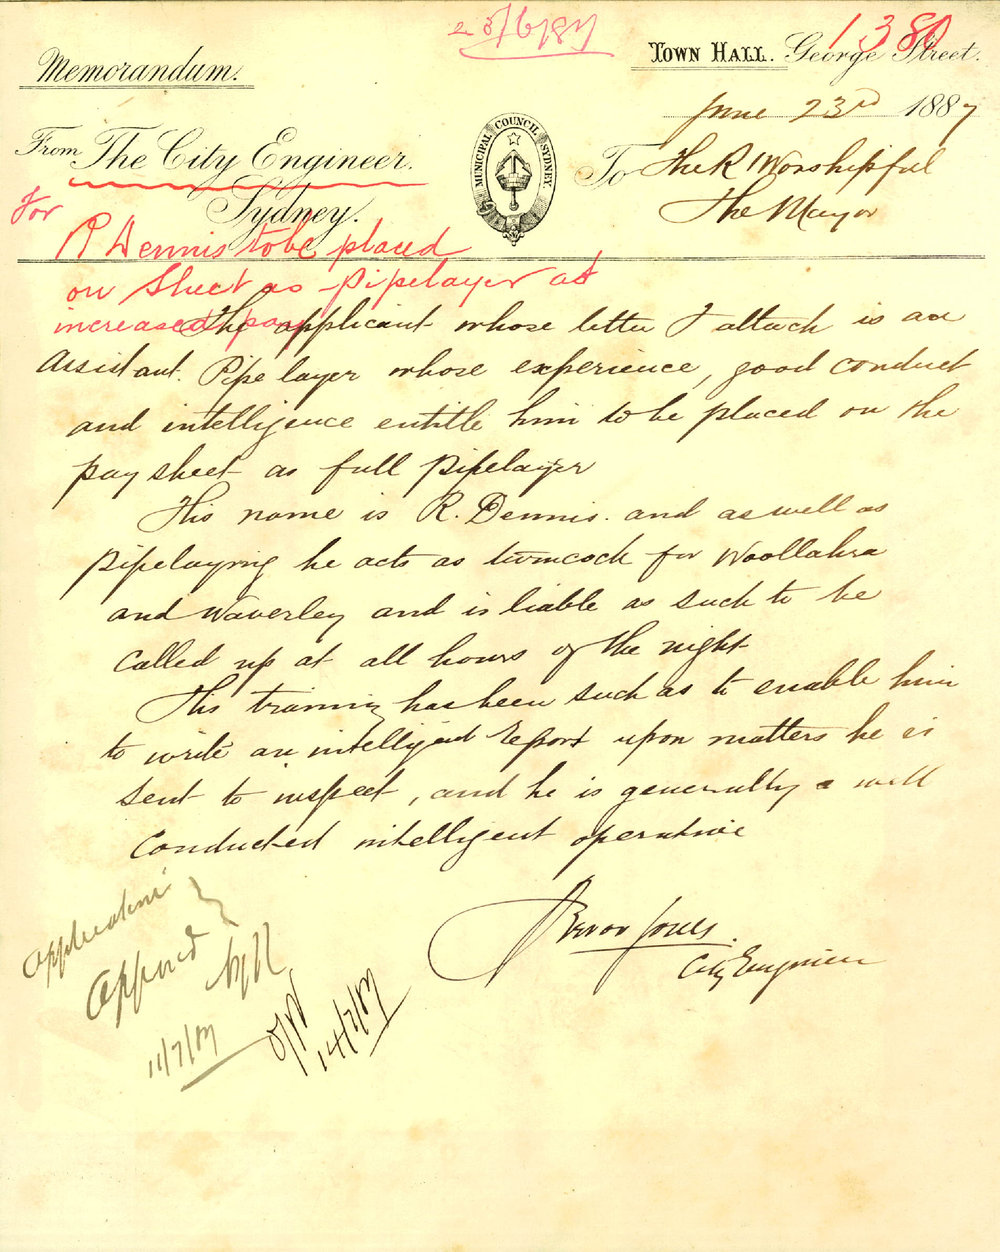 23/6/87
1380
Memorandum.
Town Hall. George Street.
June 23rd 1887
From The City Engineer.
Sydney.
MUNICIPAL COUNCIL SYDNEY
To The R Worshipful
The Mayor
For
R Dennis to be placed
on Sheet as Pipelayer at
increased pay
The applicant whose letter I attach is an
Assistant Pipe layer whose experience, good conduct
and intelligence entitle him to be placed on the
pay sheet as full pipelayer
His name is R. Dennis. and as well as
Pipelaying he acts as turncock for Woollahra
and Waverley and is liable as such to be
called up at all hours of the night
His training has been such as to enable him
to write an intelligent report upon matters he is
sent to inspect, and he is generally a well
conducted intelligent operative
Trevor Jones.
City Engineer
Application
approved
11/7/87
14/7/87